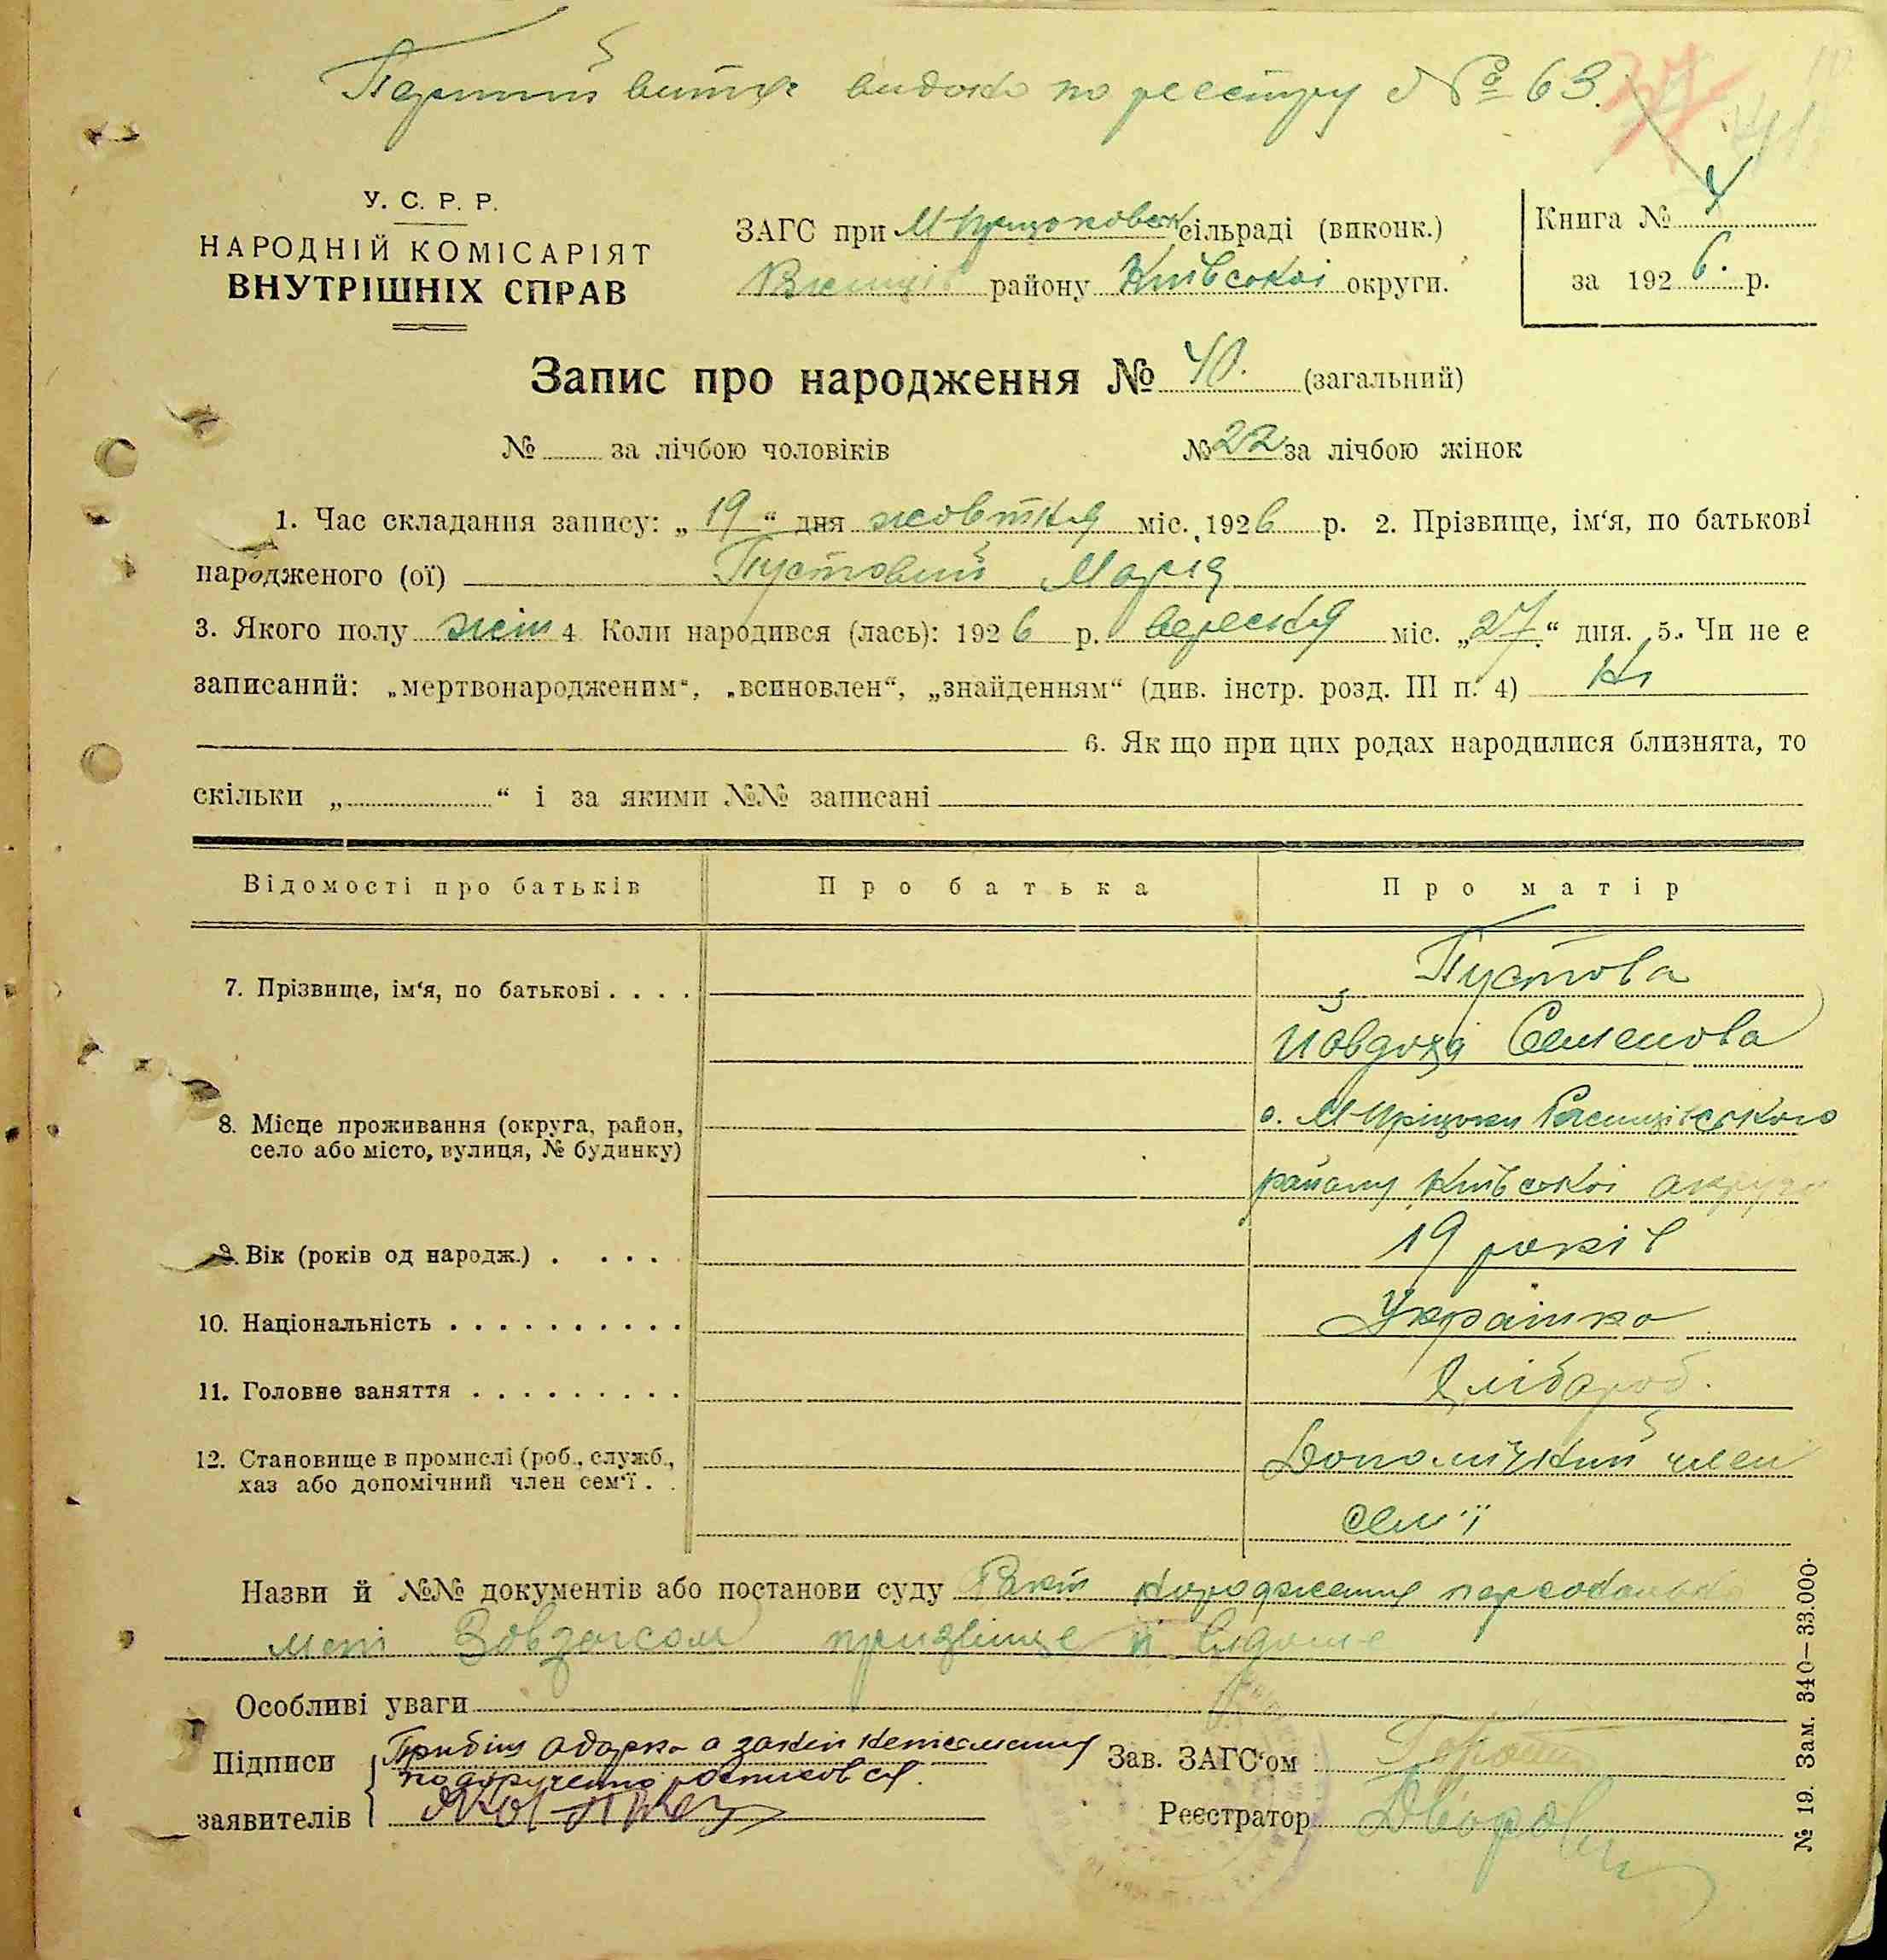 витяг видано по реєстру № 63.
37
У. С. Р. Р.
НАРОДНІЙ КОМІСАРІЯТ
ВНУТРІШНІХ СПРАВ
ЗАГС при сільраді (виконк.)
району Київської округи.
Книга №
за 1926. р.
Запис про народження № 40. (загальний)
№ за лічбою чоловіків № 22 за лічбою жінок
1. Час складання запису: „19“ дня жовтня міс. 1926 р. 2. Прізвище, ім‘я, по батькові
народженого (ої) Пустовий Марія
3. Якого полу жін 4 Коли народився (лась): 1926 р. вересня міс. „27“ дня. 5. Чи не є
записаний: „мертвонародженим“, „всиновлен“, „знайденням“ (див. інстр. розд. III п. 4) Ні
6. Як що при цих родах народилися близнята, то
скільки „ “ і за якими №№ записані
Відомості про батьків Про батька Про матір
7. Прізвище, ім‘я, по батькові . . . . Пустова
Йовдоха Семенова
8. Місце проживання (округа, район,
село або місто, вулиця, № будинку)
с. М
району Київської округи
9. Вік (років од народж.) . . . . 19 років
10. Національність . . . . . . . . . . Українка
11. Головне заняття . . . . . . . . . Хлібороб.
12. Становище в промислі (роб., служб.,
хаз або допомічний член сем‘ї . .
Допомічний член
сем'ї
Назви й №№ документів або постанови суду Факт народження
мені Завзагсом призвіще й відоме
Особливі уваги
Підписи
заявителів
Одарка а за неї неписменну
по доручению росписовся.
Зав. ЗАГС‘ом
Реєстратор
№ 19. Зам. 340—33.000.